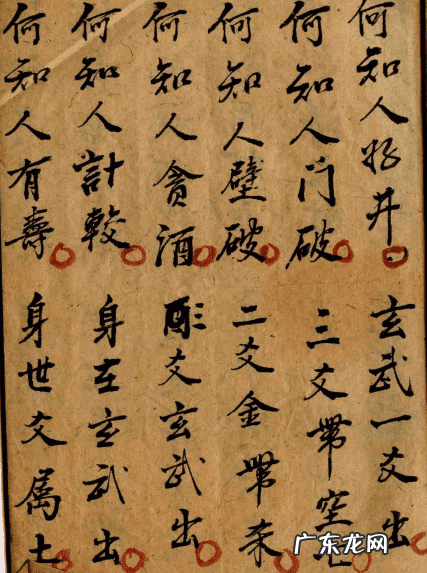 何知人井
玄武一爻出
何知人门破
三爻帶空
何知人壁破
二爻金帶杀
何知人貪酒
爻玄武出
何知人計較
身在玄武出
何知人有壽
身世爻属土
广东龙网